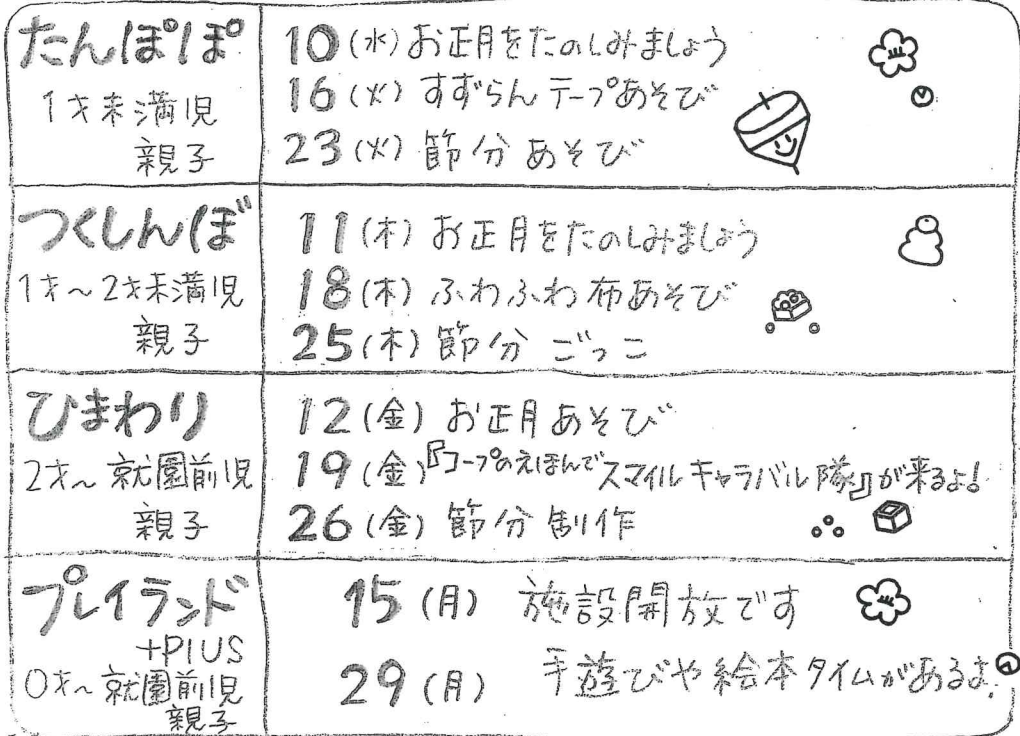 たんぽぽ
1才未満児
親子
10(水)お正月をたのしみましょう
16(火)すずらんテープあそび
23(火)節分あそび
つくしんぼ
1才～2才未満児
親子
11(木)お正月をたのしみましょう
18(木)ふわふわ布あそび
25(木)節分ごっこ
ひまわり
2才～就園前児
親子
12(金)お正月あそび
19(金)『コープのえほんでスマイルキャラバル隊』が来るよ!
26(金)節分制作
プレイランド
+PlUS
0才～就園前児
親子
15(月)施設開放です
29(月)手遊びや絵本タイムがあるよ!